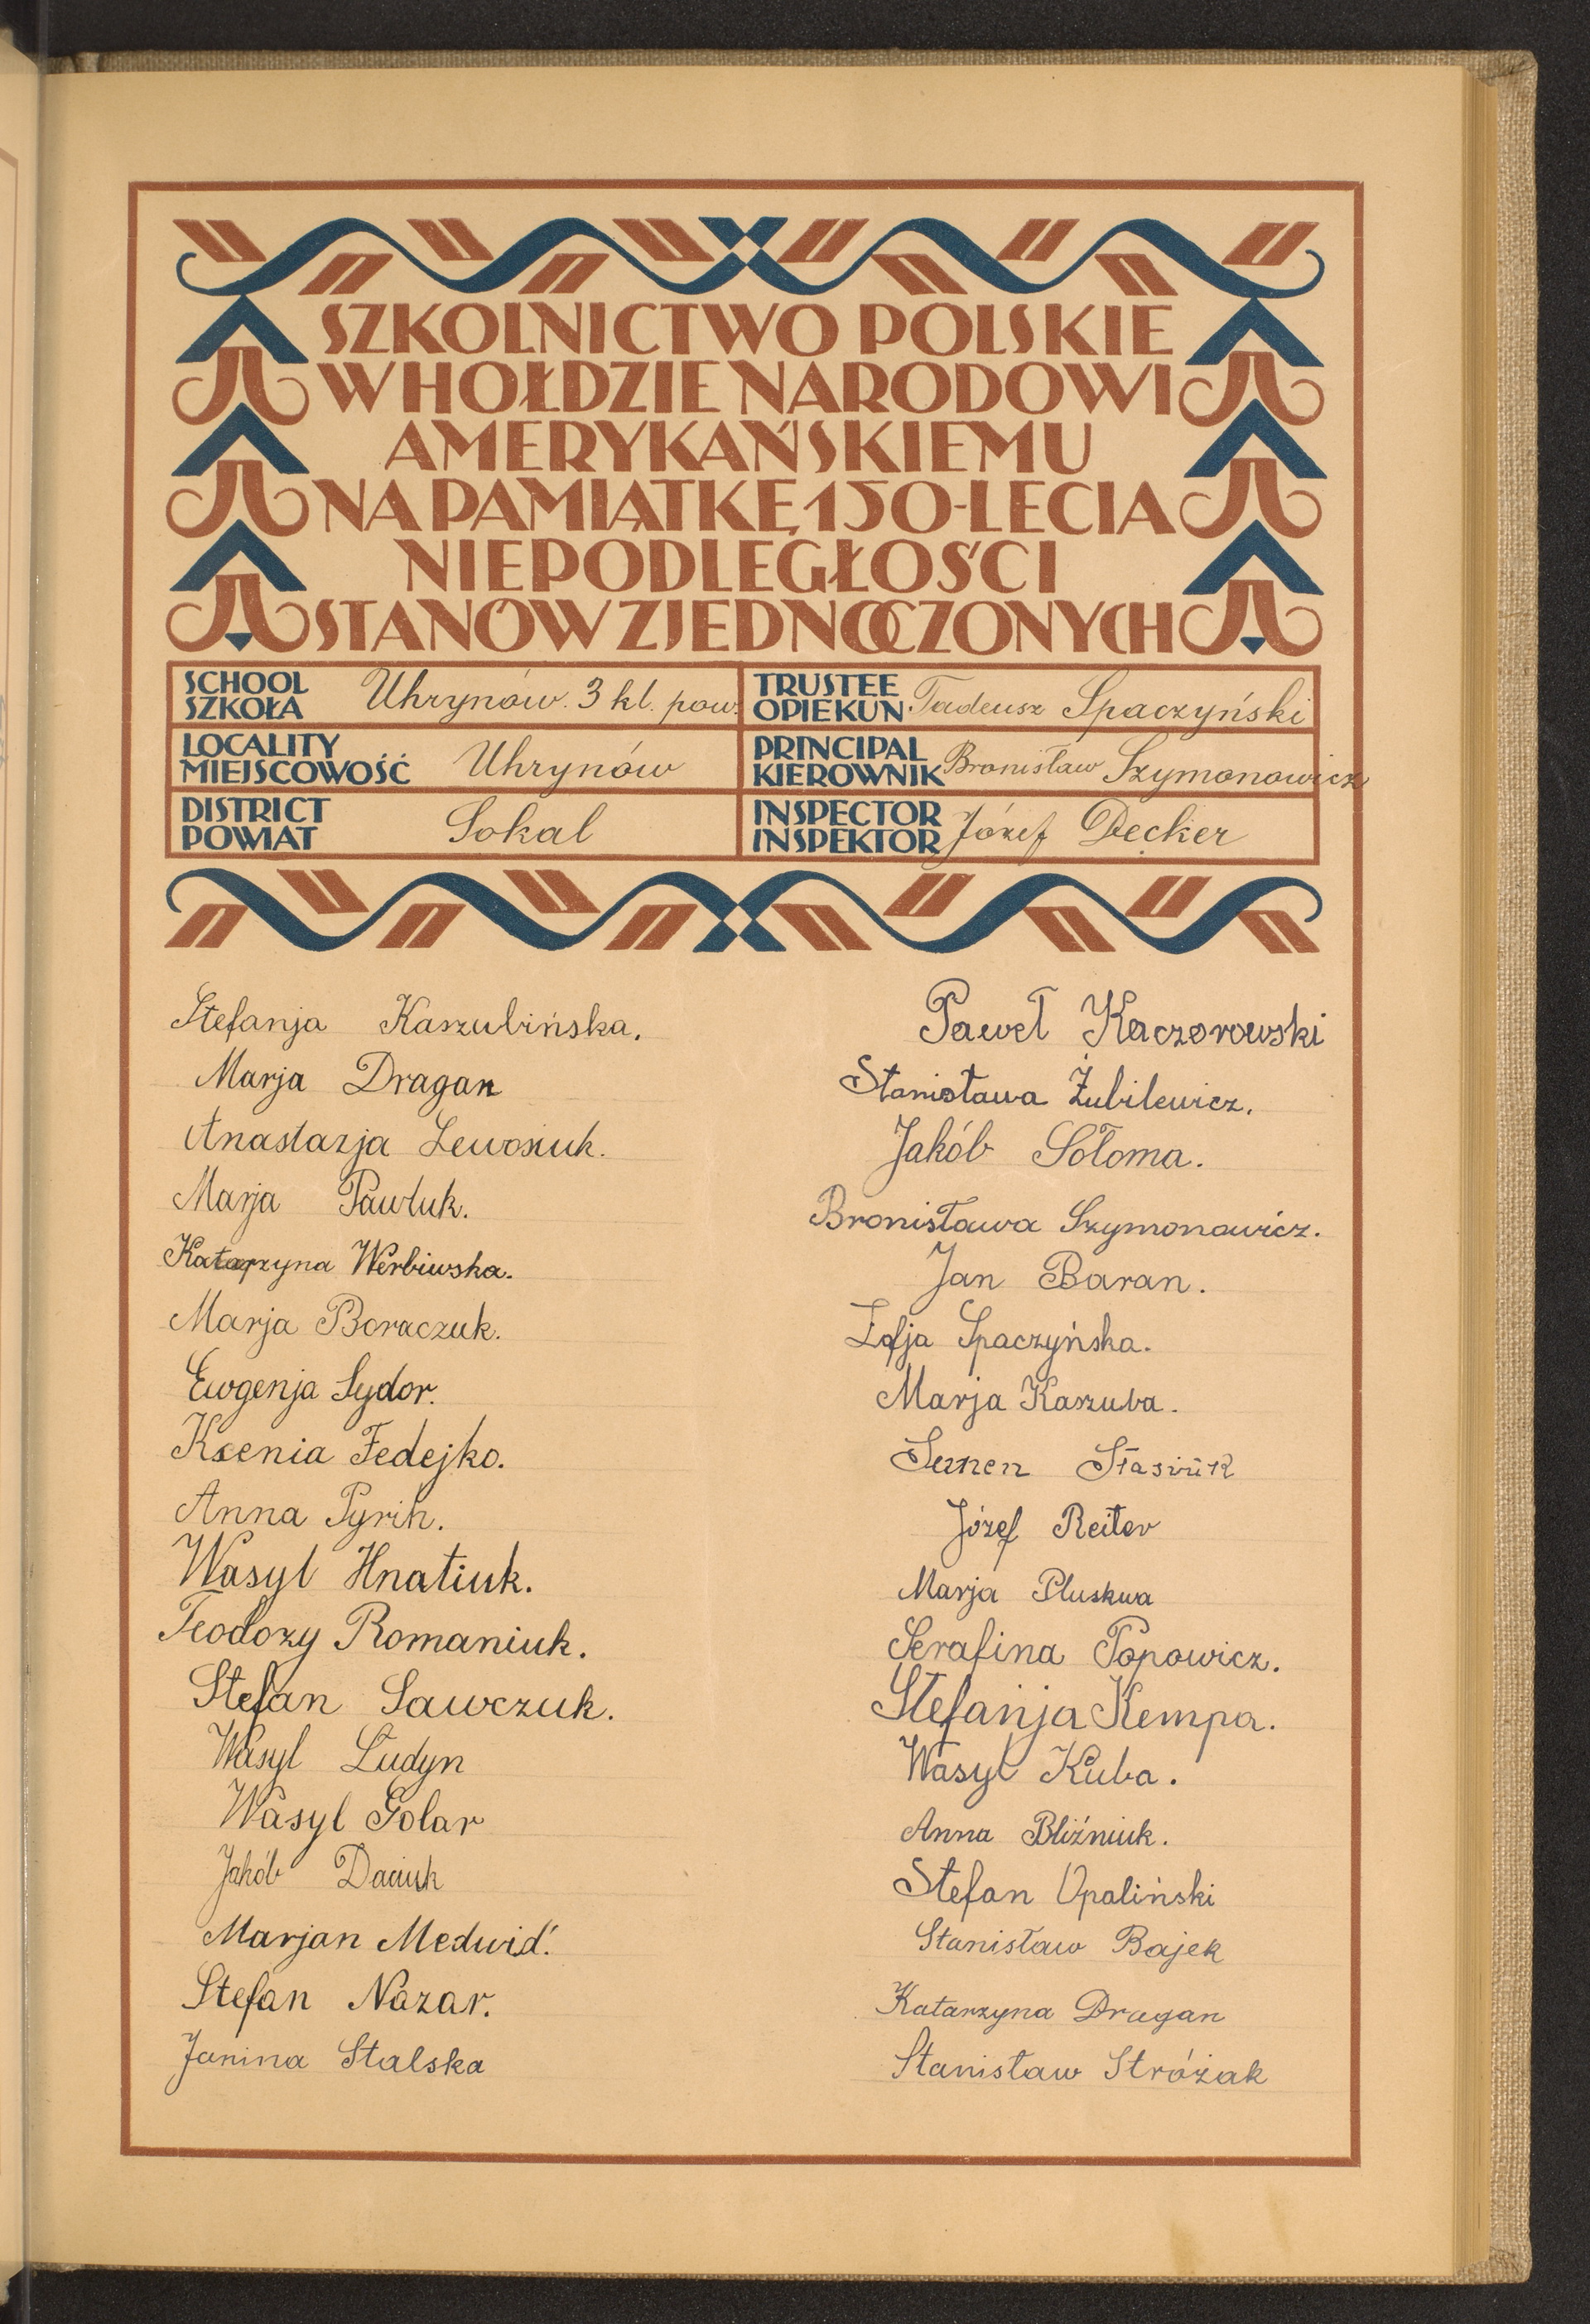 SZKOLNICTWO POLSKIE
W HOŁDZIE NARODOWI
AMERYKAŃSKIEMU
NA PAMIĄTKĘ 150-LECIA
NIEPODLEGŁOŚCI
STANÓW ZJEDNOCZONYCH
SCHOOL
SZKOŁA Uhrynów. 3 kl. pow.
TRUSTEE
OPIEKUN Tadeusz Spaczyński
LOCALITY
MIEJSCOWOŚĆ Uhrynów
PRINCIPAL
KIEROWNIK Bronisław Szymonowicz
DISTRICT
POWIAT Sokal
INSPECTOR
INSPEKTOR Józef Decker
Stefanja Kaszubińska.
Marja Dragan
Anastazja Lewosiuk.
Marja Pawluk.
Katarzyna Werbiwska.
Marja Boraczuk.
Ewgenja Sydor.
Ksenia Fedejko.
Anna Pyrih.
Wasyl Hnatiuk.
Teodozy Romaniuk.
Stefan Sawczuk.
Wasyl Ludyn
Wasyl Golar
Jakób Daciuk
Marjan Medwid'.
Stefan Nazar.
Janina Stalska
Paweł Kaczorowski
Stanisława Żubilewicz.
Jakób Sołoma.
Bronisława Szymonowicz.
Jan Baran.
Zofja Spaczyńska.
Marja Kaszuba.
Semen Stasiuk
Józef Reiter
Marja Pluskwa
Serafina Popowicz.
Stefanja Kempa.
Wasyl Kuba.
Anna Bliźniuk.
Stefan Opaliński
Stanisław Bajek
Katarzyna Dragan
Stanisław Stróżak